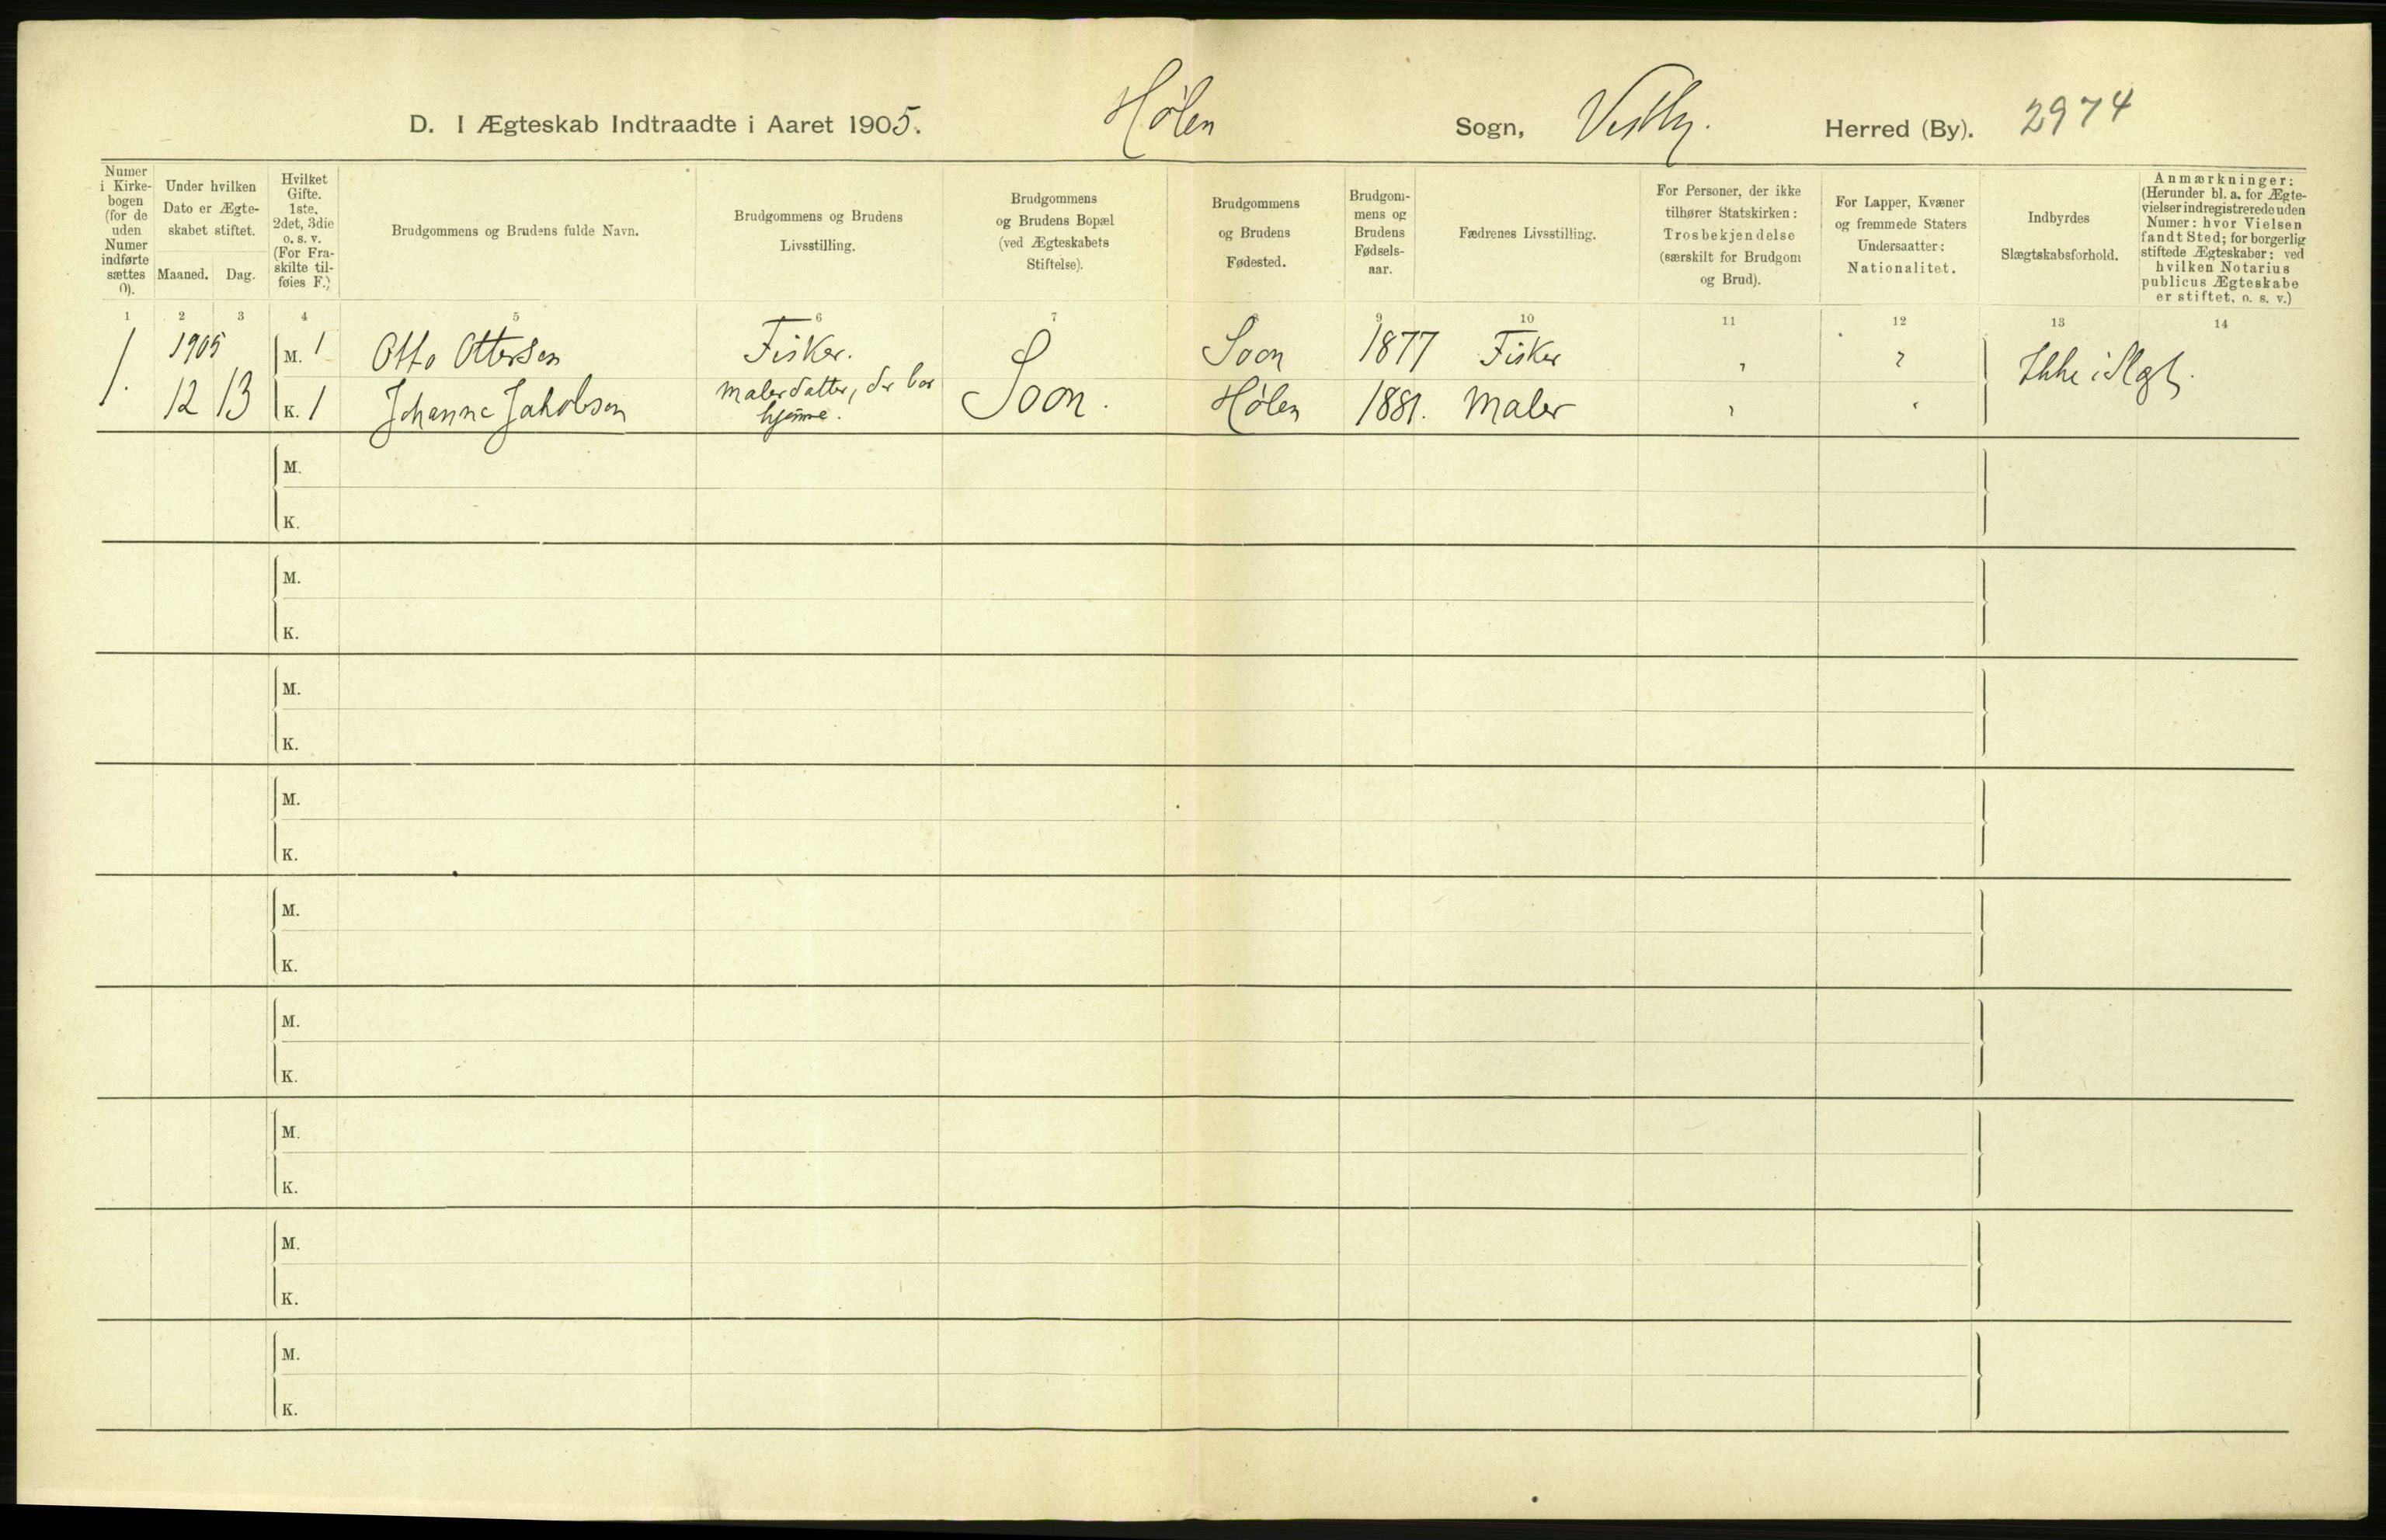 D. I Ægteskab Indtraadte i Aaret 1905. Hølen Sogn, Vestby. Herred (By). 2974
Numer
i Kirke-
bogen
(for de
uden
Numer
indførte
sættes
0).
Under hvilken
Dato er Ægte-
skabet stiftet.
Maaned. Dag.
Hvilket
Gifte.
1ste,
2det, 3die
o. s. v.
(For Fra-
skilte til-
føies F.)
Brudgommens og Brudens fulde Navn.
Brudgommens og Brudens
Livsstilling.
Brudgommens
og Brudens Bopæl
(ved Ægteskabets
Stiftelse).
Brudgommens
og Brudens
Fødested.
Brudgom-
mens og
Brudens
Fødsels-
aar.
Fædrenes Livsstilling.
For Personer, der ikke
tilhører Statskirken:
Trosbekjendelse
(særskilt for Brudgom
og Brud).
For Lapper, Kvæner
og fremmede Staters
Undersaatter:
Nationalitet.
Indbyrdes
Slægtskabsforhold.
Anmærkninger:
(Herunder bl. a. for Ægte-
vielser indregistrerede uden
Numer: hvor Vielsen
fandt Sted; for borgerlig
stiftede Ægteskaber: ved
hvilken Notarius
publicus Ægteskabe
er stiftet, o. s. v.)
1 2 3 4 5 6 7 8 9 10 11 12 13 14
1. 1905 M. 1 Otto Ottersen Fisker. Soon 1877 Fisker " "
12 13 K. 1 Johanne Jakobsen Malerdatter, der bor
hjemme. Soon. Hølen 1881. Maler " " Ikke i Slægt.
M.
K.
M.
K.
M.
K.
M.
K.
M.
K.
M.
K.
M.
K.
M.
K.
M.
K.